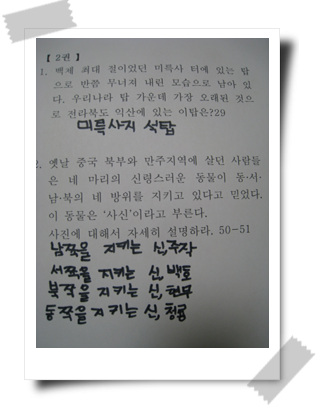 【 2권 】
1. 백제 최대 절이었던 미륵사 터에 있는 탑
으로 반쯤 무너져 내린 모습으로 남아 있
다. 우리나라 탑 가운데 가장 오래된 것으
로 전라북도 익산에 있는 이탑은?29
미륵사지 석탑
2. 옛날 중국 북부와 만주지역에 살던 사람들
은 네 마리의 신령스러운 동물이 동·서·
남·북의 네 방위를 지키고 있다고 믿었다.
이 동물은 '사신'이라고 부른다.
사진에 대해서 자세히 설명하라. 50-51
남쪽을 지키는 신,주작
서쪽을 지키는 신,백호
북쪽을 지키는 신,현무
동쪽을 지키는 신,청룡